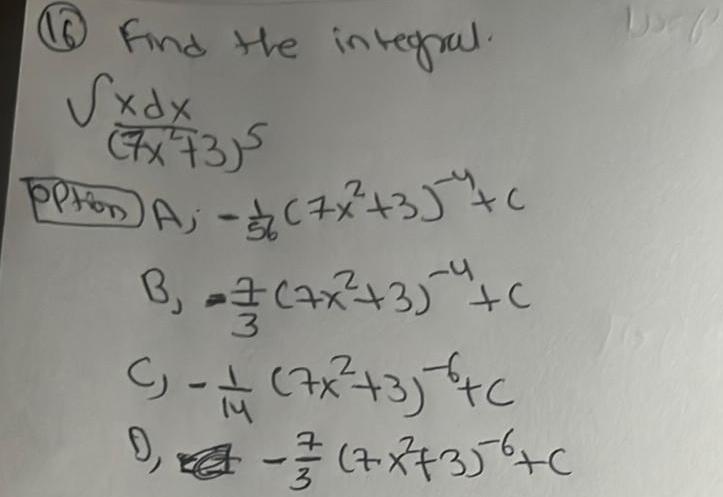 16 Find the integral.
∫ x dx / (7x²+3)^5
Option A, -1/56 (7x²+3)^-4 + C
B, -7/3 (7x²+3)^-4 + C
C, -1/14 (7x²+3)^-6 + C
D, -7/3 (7x²+3)^-6 + C